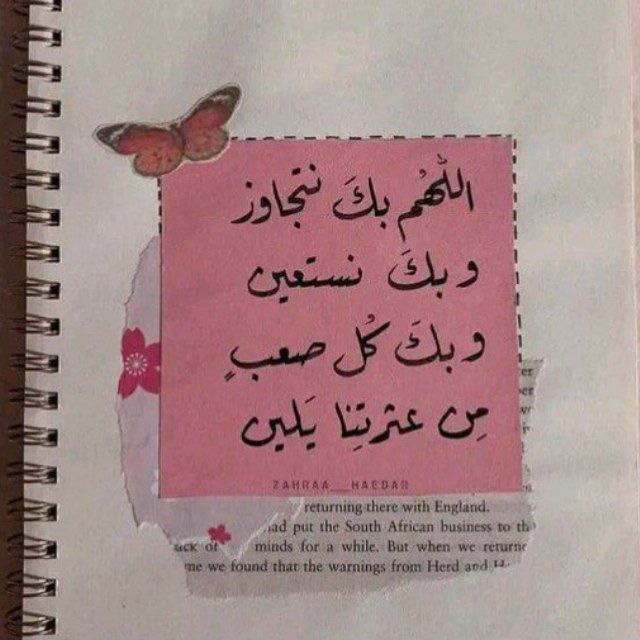 اللّهُم بكَ نتجاوز
و بكَ نستعين
و بكَ كُل صعبٍ
مِن عثرتِنا يَلين
ZAHRAA__HAEDAR
returning there with England.
had put the South African business to th
ack of minds for a while. But when we returne
me we found that the warnings from Herd and